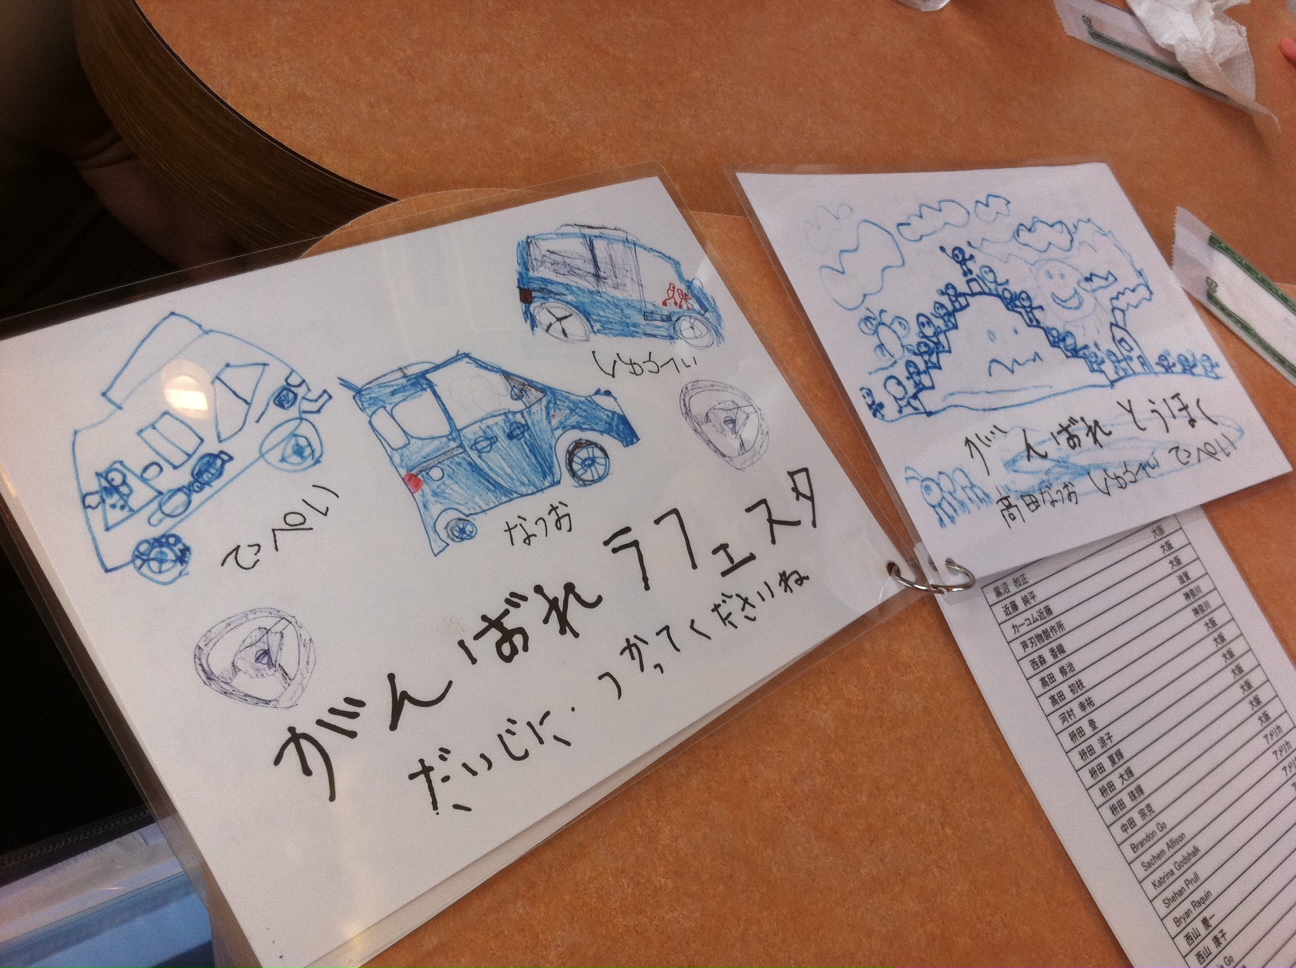 しゅうへい
てっぺい
なつお
がんばれ ラフェスタ
だいじに つかってくださいね
がんばれ とうほく
高田なつお しゅうへい てっぺい
大阪
黒沼 和正 大阪
近藤 純平 大阪
カーコム近藤 滋賀
戸刃物製作所 神奈川
西森 香織 神奈川
高田 修治 大阪
高田 初枝 大阪
河村 幸祐 大阪
枡田 登 大阪
枡田 涼子 大阪
枡田 夏輝 大阪
枡田 大輝 大阪
枡田 球輝 アメリカ
中田 宗克 アメリカ
Brandon Go
Sachem Allison
Katrina Godshalk
Shehan Prull
Bryan Raquin
西山 慶一
西山 康子